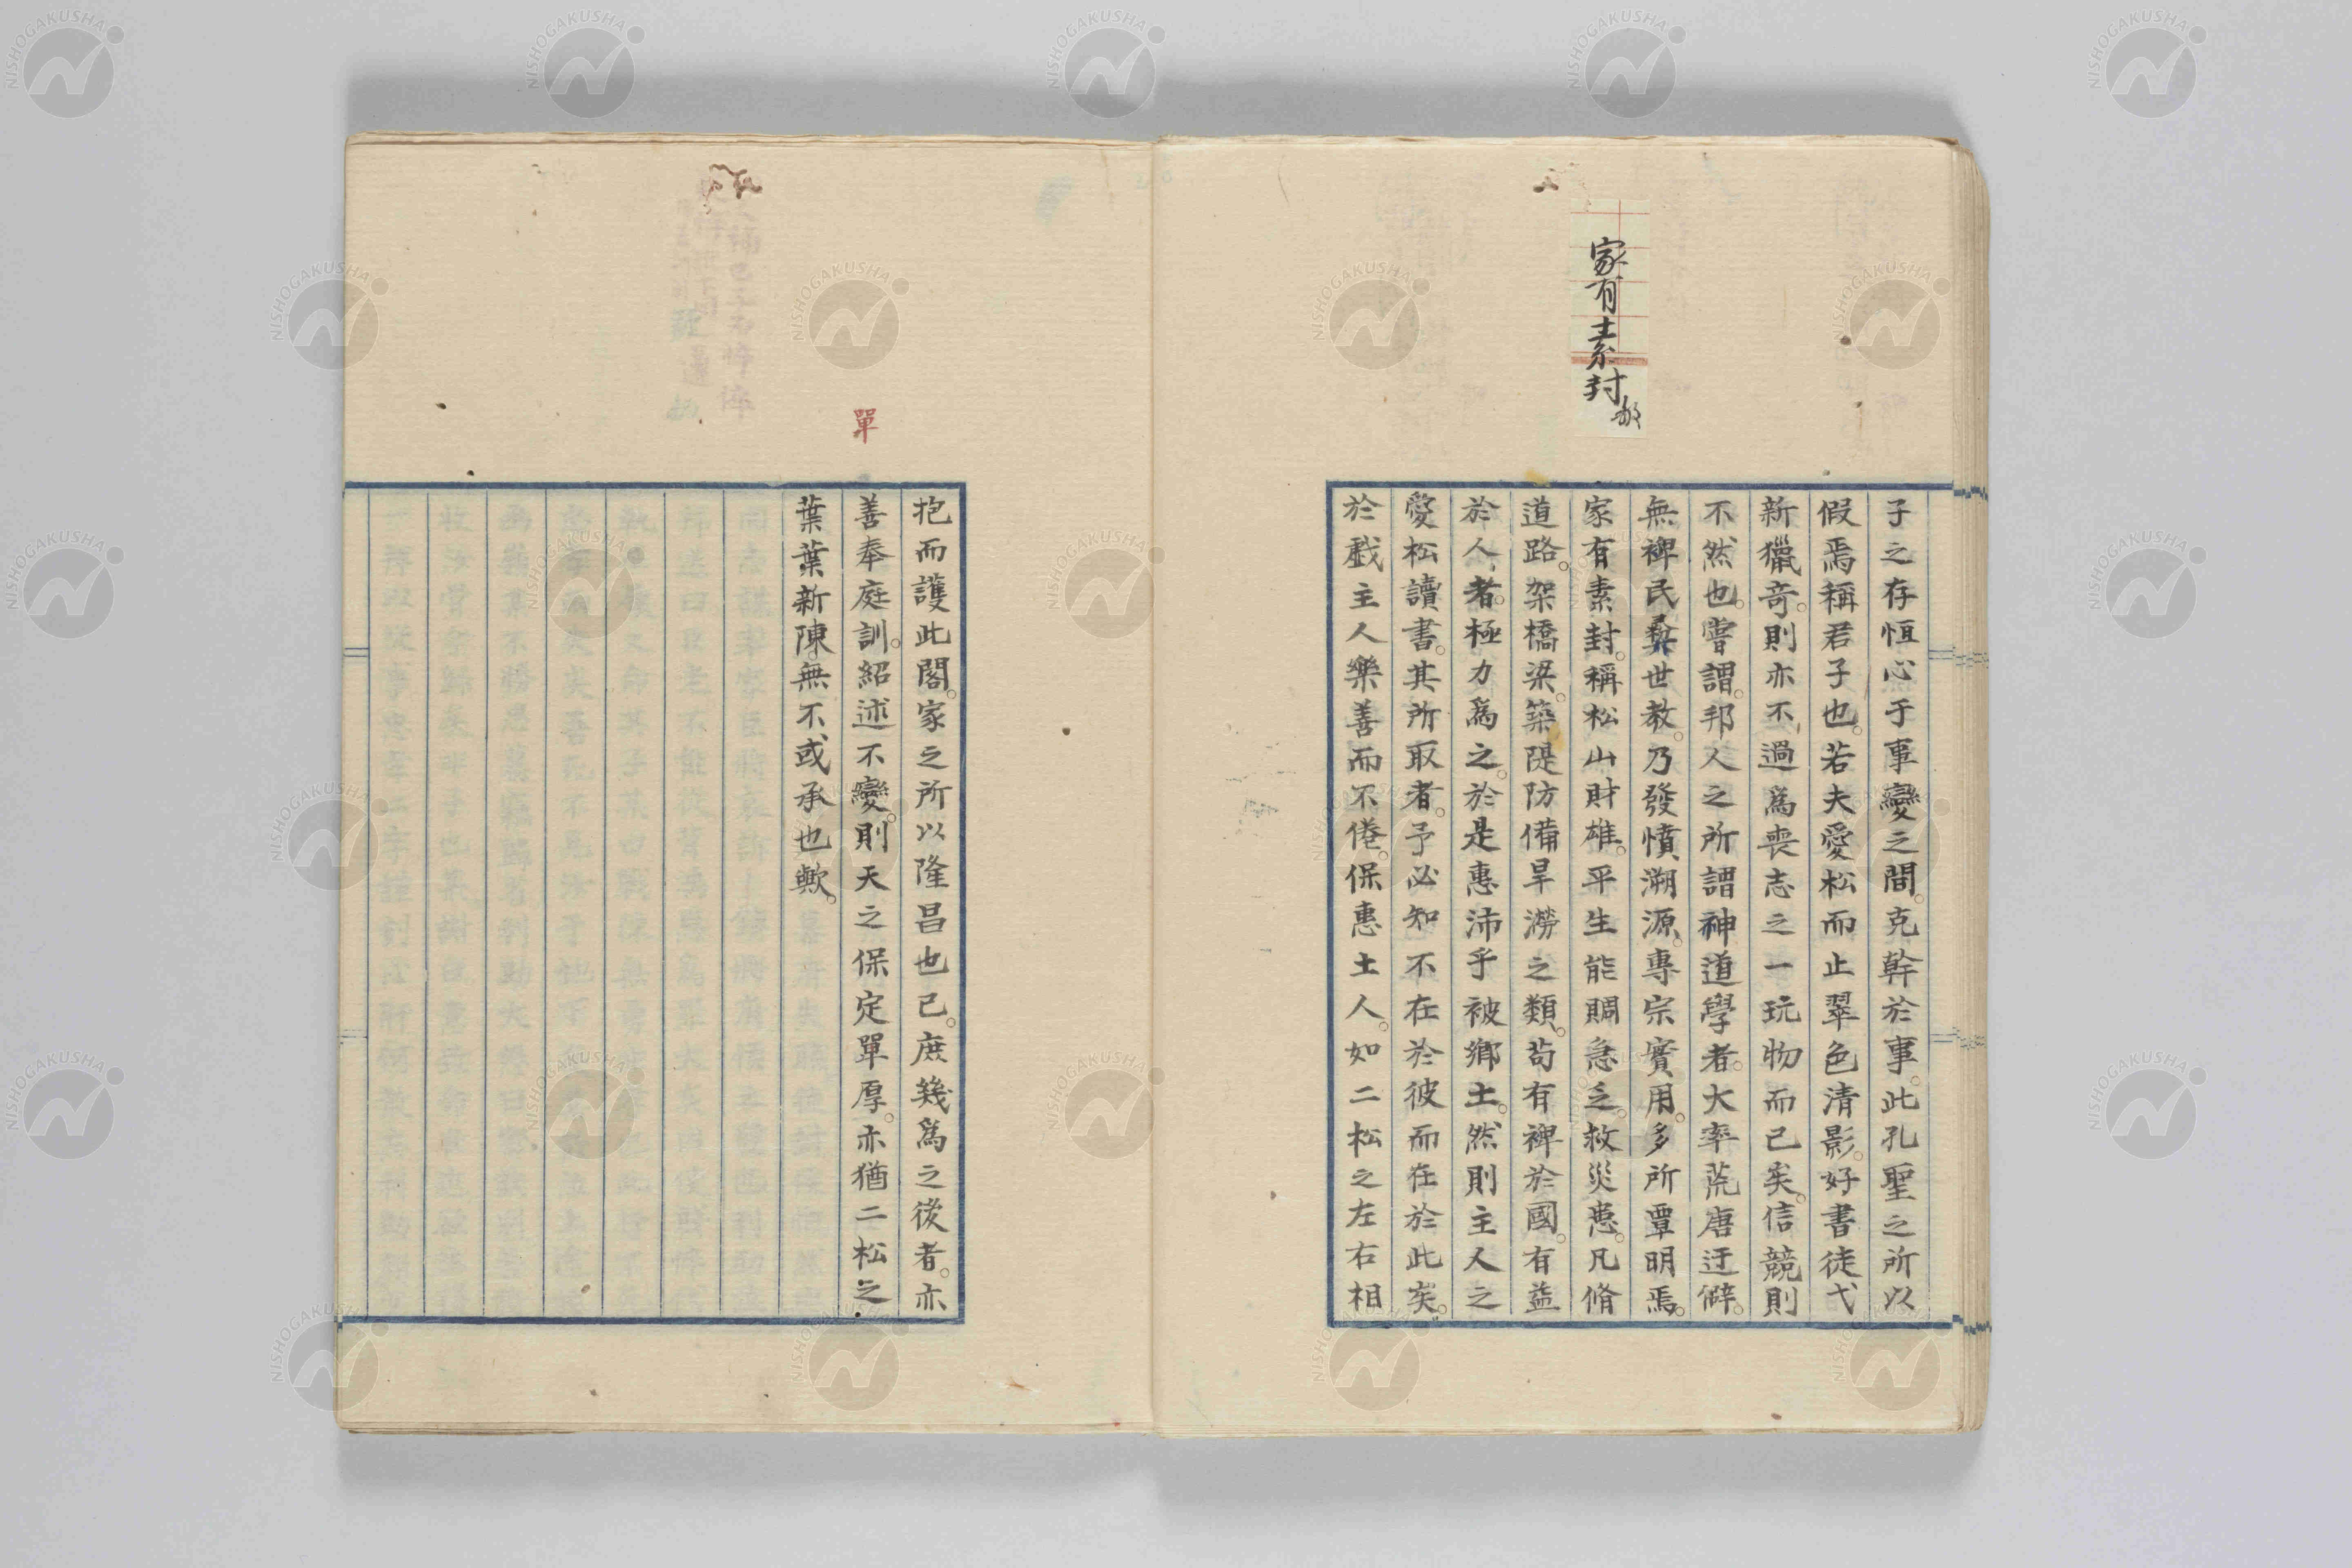 家有素封
子之存恒心于事變之間。克幹於事。此孔聖之所以
假焉稱君子也。若夫愛松而止翠色清影。好書徒弋
新獵奇。則亦不過爲喪志之一玩物而已矣。信競則
不然也。嘗謂。邦人之所謂神道學者。大率荒唐迂僻。
無裨民彝世教。乃發憤溯源。專宗實用。多所覃明焉。
家有素封。稱松山財雄。平生能賙急乏。救災患。凡脩
道路。架橋梁。築隄防備旱澇之類。苟有裨於國。有益
於人者。極力爲之。於是惠沛乎被鄉土。然則主人之
愛松讀書。其所取者。予必知不在於彼而在於此矣。
於戲主人樂善而不倦。保惠土人。如二松之左右相
單
抱而護此閣。家之所以隆昌也已。庶幾爲之後者。亦
善奉庭訓。紹述不變。則天之保定單厚。亦猶二松之
葉葉新陳。無不或承也歟。
NISHOGAKUSHA